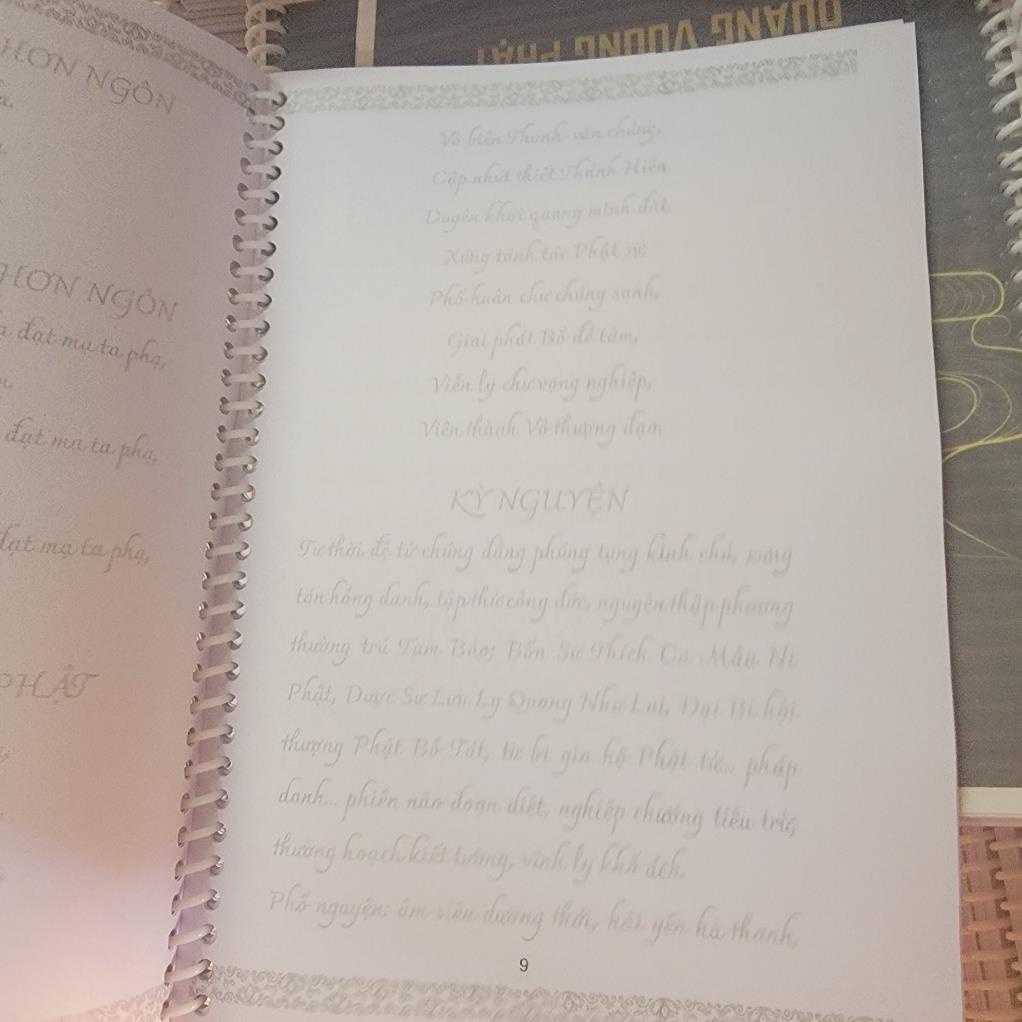 QUANG VƯƠNG PHẬT
HƠN NGÔN
HƠN NGÔN
đạt ma ta phạ,
đạt ma ta phạ,
đạt ma ta phạ,
PHẬT
Vô biên Thanh văn chúng,
Cập nhứt thiết Thánh Hiền
Duyên khởi quang minh đài,
Xứng tánh tác Phật sự
Phổ huân chư chúng sanh,
Giai phát Bồ đề tâm,
Viễn ly chư vọng nghiệp,
Viên thành Vô thượng đạo.
KỲ NGUYỆN
Tư thời đệ tử chúng đẳng phúng tụng kinh chú, xưng
tán hồng danh, tập thử công đức, nguyện thập phương
thường trú Tam Bảo; Bổn Sư Thích Ca Mâu Ni
Phật, Dược Sư Lưu Ly Quang Như Lai, Đại Bi hội
thượng Phật Bồ Tát, từ bi gia hộ Phật tử... pháp
danh... phiền não đoạn diệt, nghiệp chướng tiêu trừ,
thường hoạch kiết tường, vĩnh ly khổ ách.
Phổ nguyện: âm siêu dương thới, hải yến hà thanh,
9